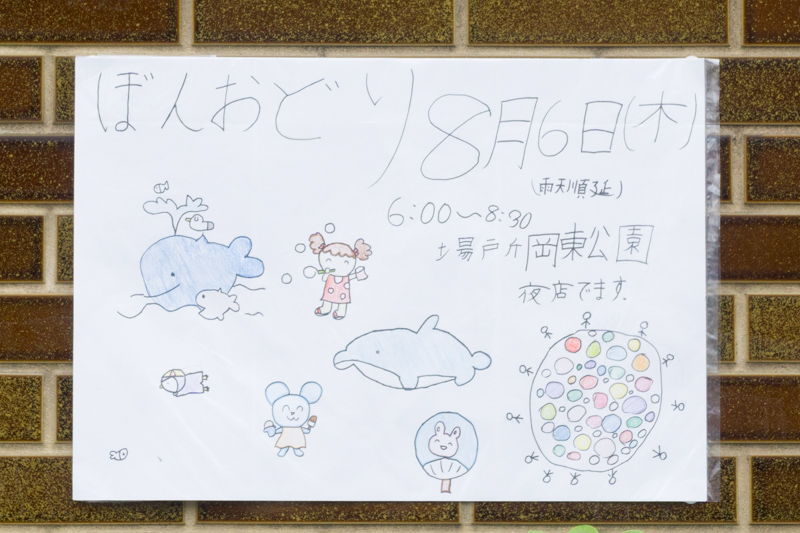 ぼんおどり 8月6日(木)
(雨天順延)
6:00〜8:30
場所 岡東公園
夜店でます.